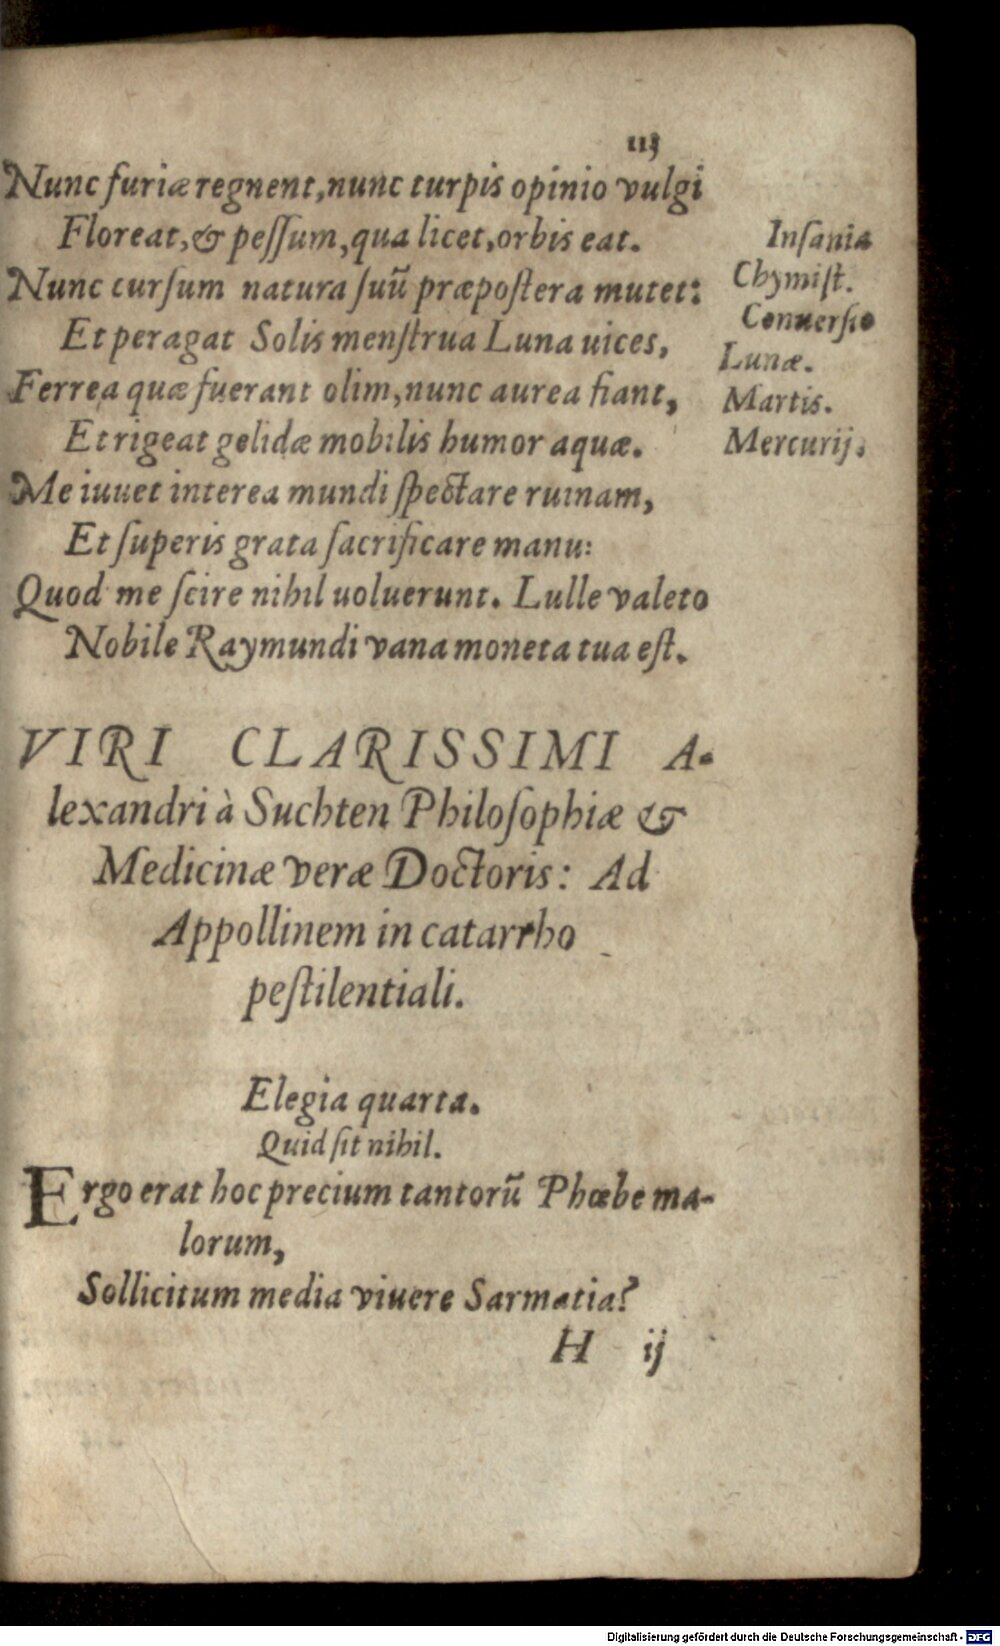 113
Nunc furiæ regnent, nunc turpis opinio vulgi
Floreat, & peſſum, qua licet, orbis eat.
Nunc curſum natura ſuũ præpoſtera mutet:
Et peragat Solis menſtrua Luna uices,
Ferrea quæ fuerant olim, nunc aurea fiant,
Et rigeat gelidæ mobilis humor aquæ.
Me iuuet interea mundi ſpectare ruinam,
Et ſuperis grata ſacrificare manu:
Quod me ſcire nihil uoluerunt. Lulle valeto
Nobile Raymundi vana moneta tua eſt.
Inſania
Chymiſt.
Conuerſio
Lunæ.
Martis.
Mercurij.
VIRI CLARISSIMI A-
lexandri à Suchten Philoſophiæ &
Medicinæ veræ Doctoris: Ad
Appollinem in catarrho
peſtilentiali.
Elegia quarta.
Quid ſit nihil.
Ergo erat hoc precium tantorũ Phœbe ma-
lorum,
Sollicitum media viuere Sarmatia?
H ij
Digitalisierung gefördert durch die Deutsche Forschungsgemeinschaft - DFG